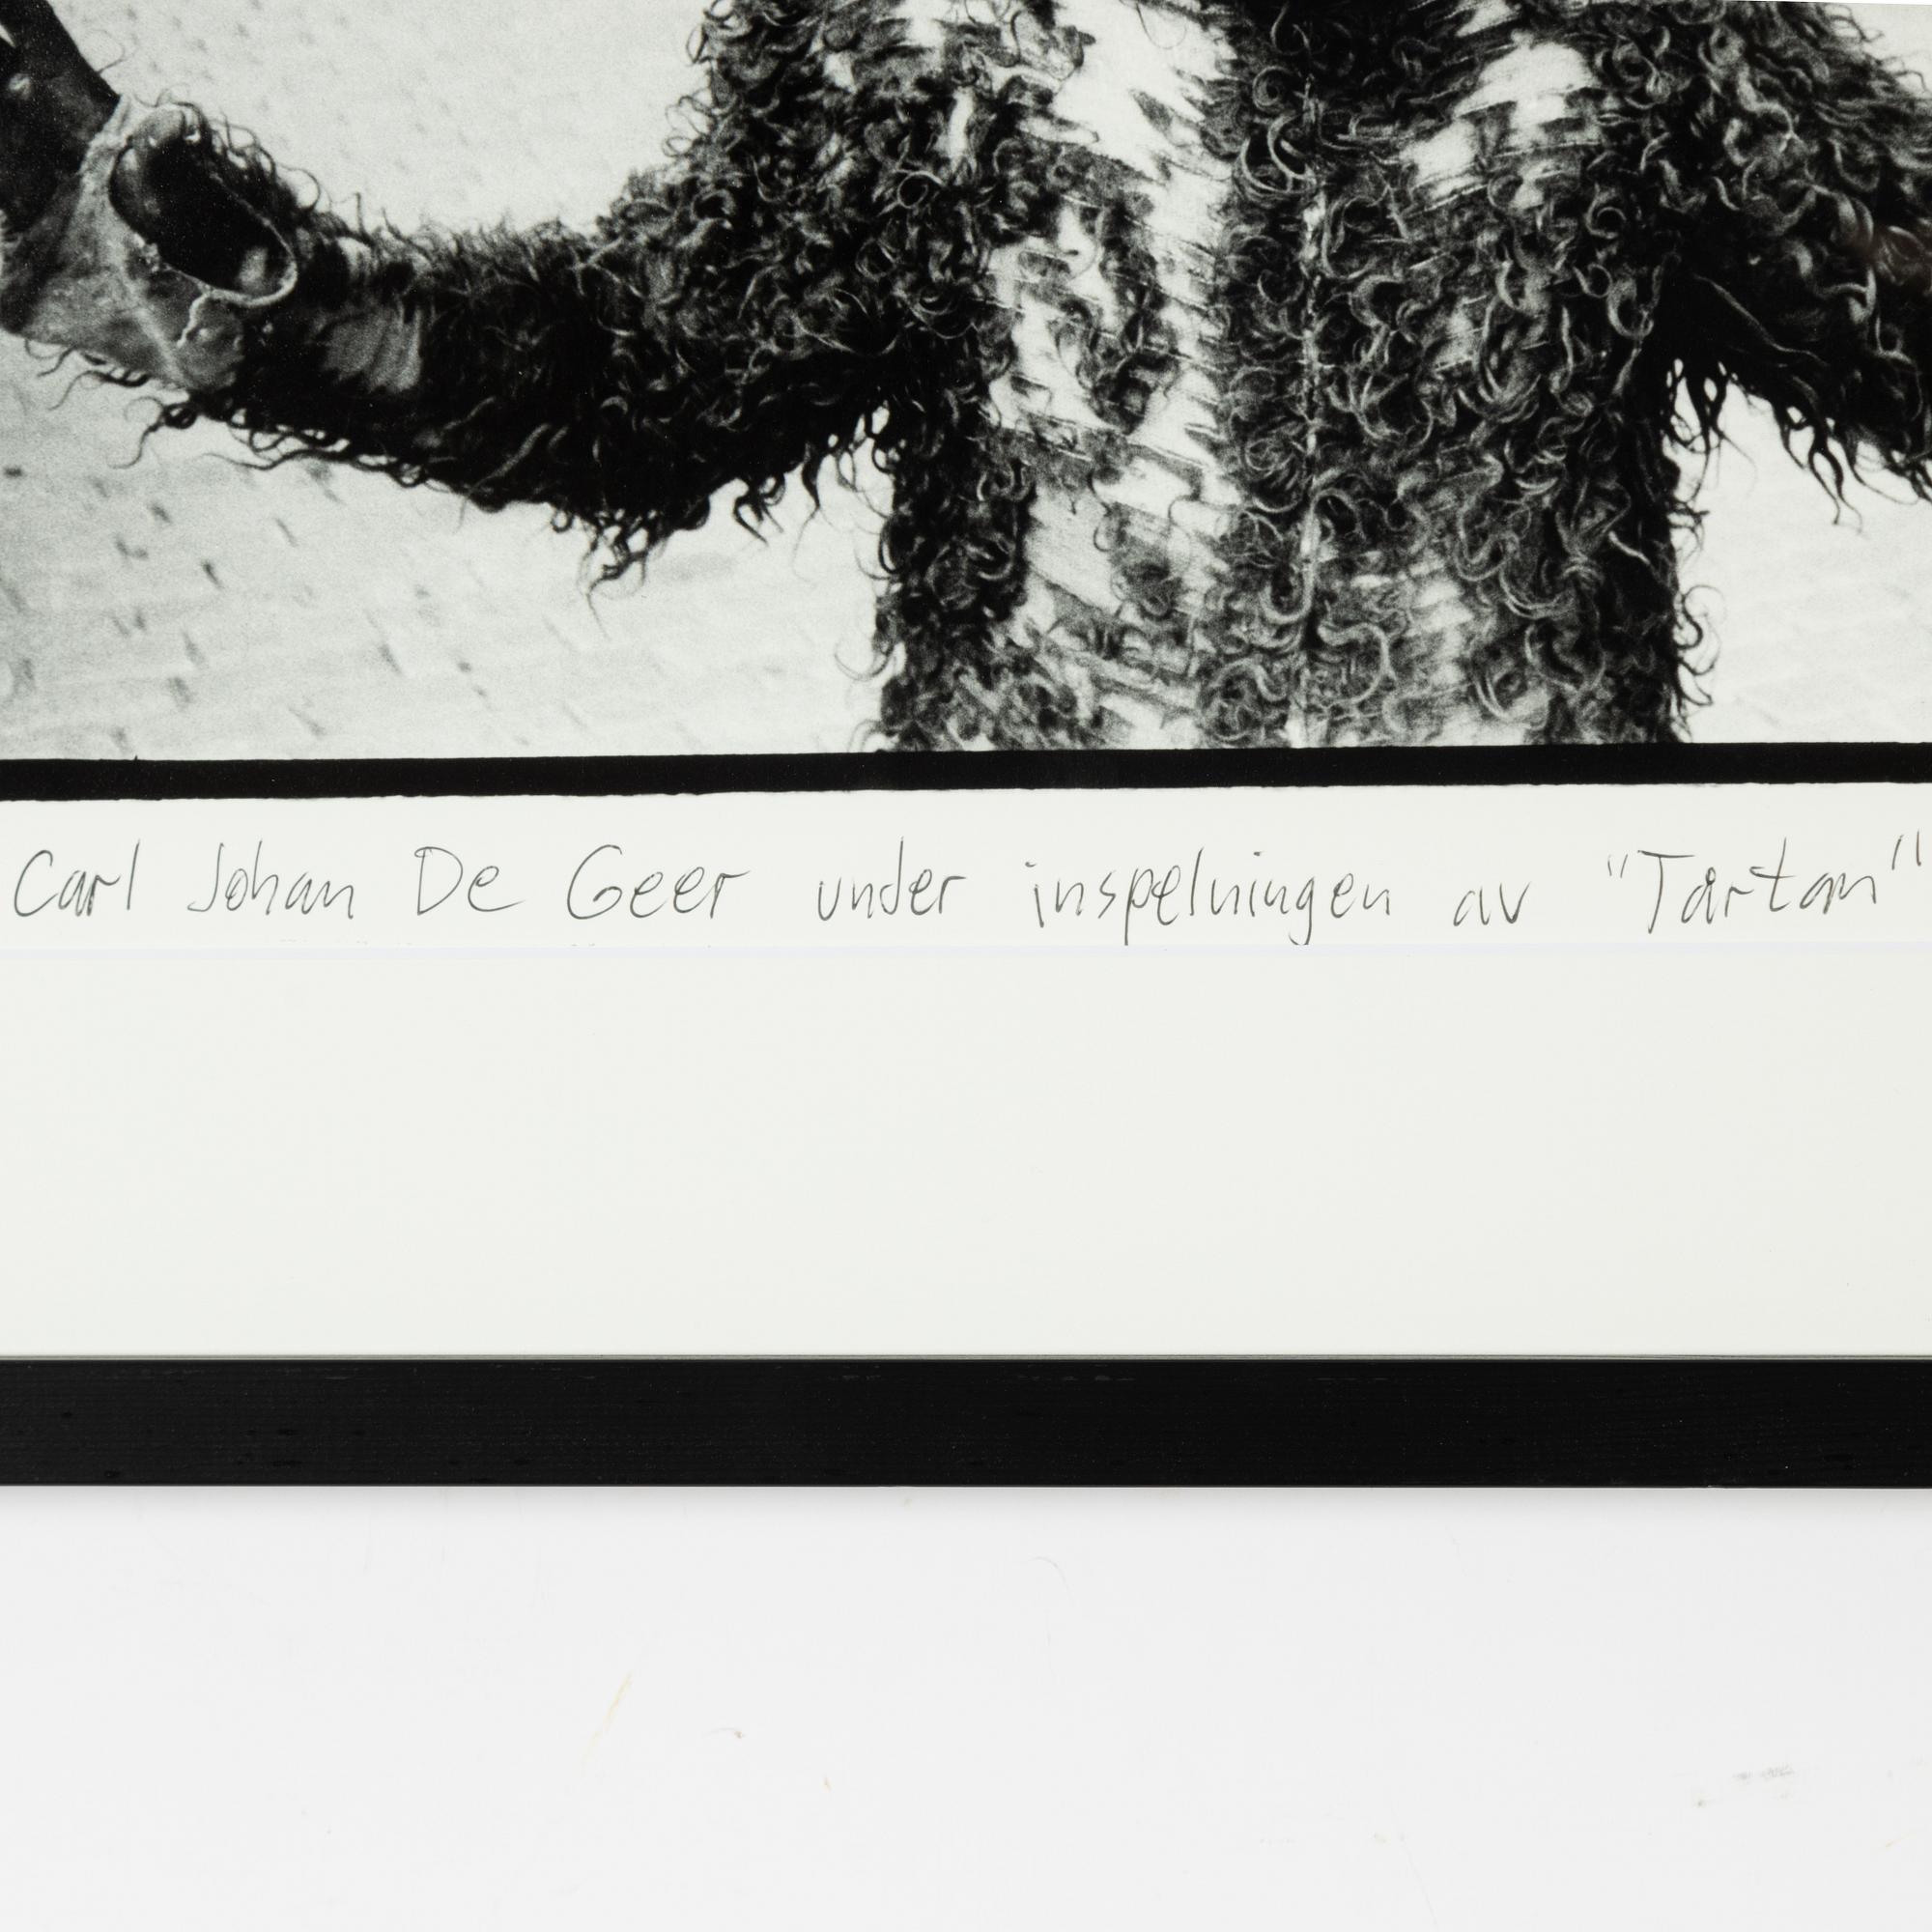 Carl Johan De Geer under inspelningen av "Tartan"